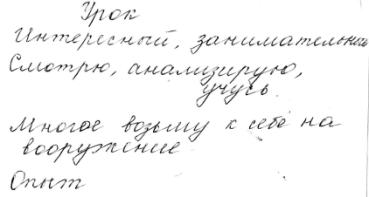 Урок
Интересный, занимательный
Смотрю, анализирую,
учусь.
Многое возьму к себе на
вооружение
Опыт